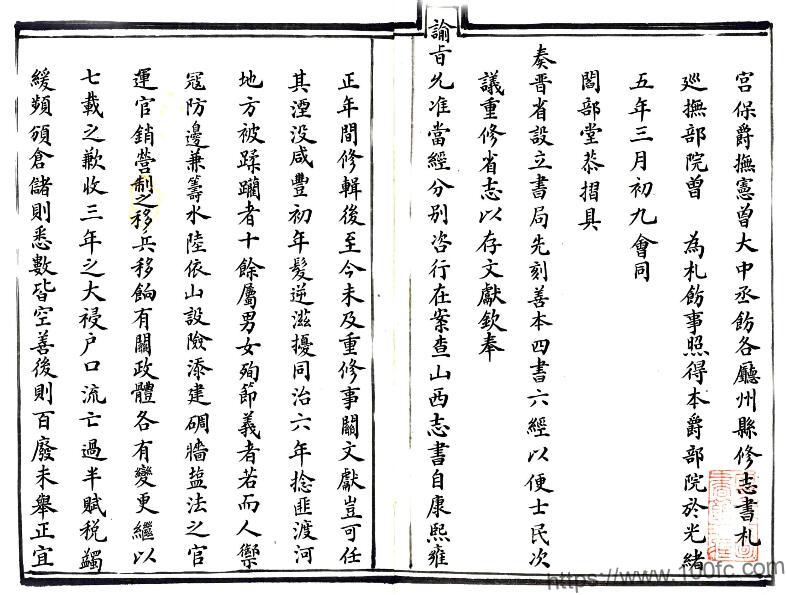 宮保爵撫憲曾大中丞飭各廳州縣修志書札
廵撫部院曾 為札飭事照得本爵部院於光緒
五年三月初九會同
閻部堂恭摺具
奏晉省設立書局先刻善本四書六經以便士民次
議重修省志以存文獻欽奉
諭旨允准當經分別咨行在案查山西志書自康熙雍
正年間修輯後至今未及重修事關文獻豈可任
其湮没咸豐初年髮逆滋擾同治六年捻匪渡河
地方被蹂躪者十餘屬男女殉節義者若而人禦
冦防邊兼籌水陸依山設險添建碉牆盐法之官
運官銷營制之移兵移餉有關政體各有變更繼以
七載之歉收三年之大祲户口流亡過半賦税蠲
緩頻頒倉儲則悉數皆空善後則百廢未舉正宜
https://www.100fc.com